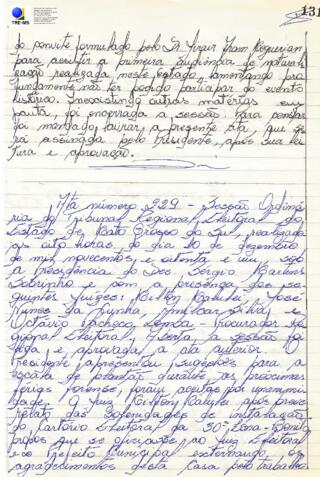 TRE-MS
131
do convite formulado pelo Dr.
para assistir a primeira audiência de
realizada neste estado, lamentando pro
fundamente não ter podido participar do evento
histórico. Inexistindo outras matérias em
pauta, foi encerrada a sessão. Para constar
foi mandado lavrar a presente ata, que se
rá assinada pelo Presidente, após sua lei
tura e aprovação.
Ata número 229 - Sessão Ordiná
ria do Tribunal Regional Eleitoral do
Estado de Mato Grosso do Sul, realizada
às oito horas do dia 10 de dezembro
de mil novecentos e oitenta e um, sob
a Presidência do Des. Sérgio Martins
Sobrinho e com a presença dos se
guintes Juízes: José
Nunes da Cunha, Silva e
Octávio Pacheco - Procurador Re
gional Eleitoral. Aberta a sessão foi
lida e aprovada a ata anterior. O
Presidente apresentou sugestões para a
escala de plantão durante as
forenses, foram aceitas por unanimi
dade. O Juiz após breve
relato das solenidades de instalação
do Cartório Eleitoral da 30ª Zona - Bonito
propôs que se oficiasse ao Juiz Eleitoral
e ao Prefeito Municipal externando os
agradecimentos desta Casa pelo trabalho